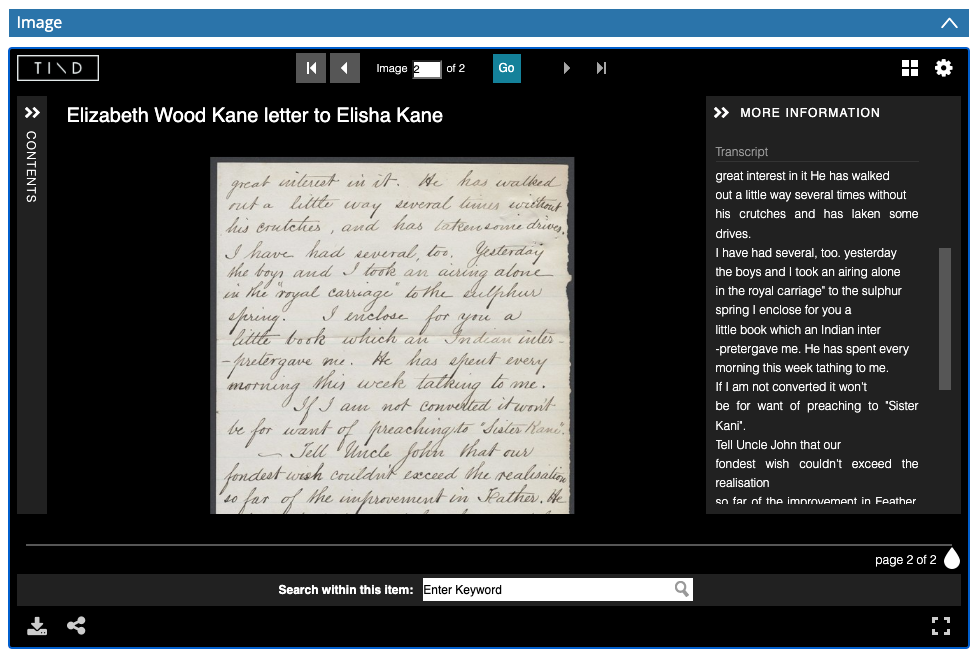 Image
TIND
Image 2 of 2 Go
Elizabeth Wood Kane letter to Elisha Kane
CONTENTS
great interest in it. He has walked
out a little way several times without
his crutches, and has taken some drives.
I have had several, too. Yesterday
the boys and I took an airing alone
in the "royal carriage" to the sulphur
spring. I enclose for you a
little book which an Indian inter-
-preter gave me. He has spent every
morning this week talking to me.
If I am not converted it won't
be for want of preaching to "Sister Kani".
— Tell Uncle John that our
fondest wish couldn't exceed the realisation
so far of the improvement in Father. He
MORE INFORMATION
Transcript
great interest in it He has walked
out a little way several times without
his crutches and has laken some
drives.
I have had several, too. yesterday
the boys and I took an airing alone
in the royal carriage" to the sulphur
spring I enclose for you a
little book which an Indian inter
-pretergave me. He has spent every
morning this week tathing to me.
If I am not converted it won't
be for want of preaching to "Sister
Kani".
Tell Uncle John that our
fondest wish couldn't exceed the
realisation
so far of the improvement in Feather
page 2 of 2
Search within this item: Enter Keyword